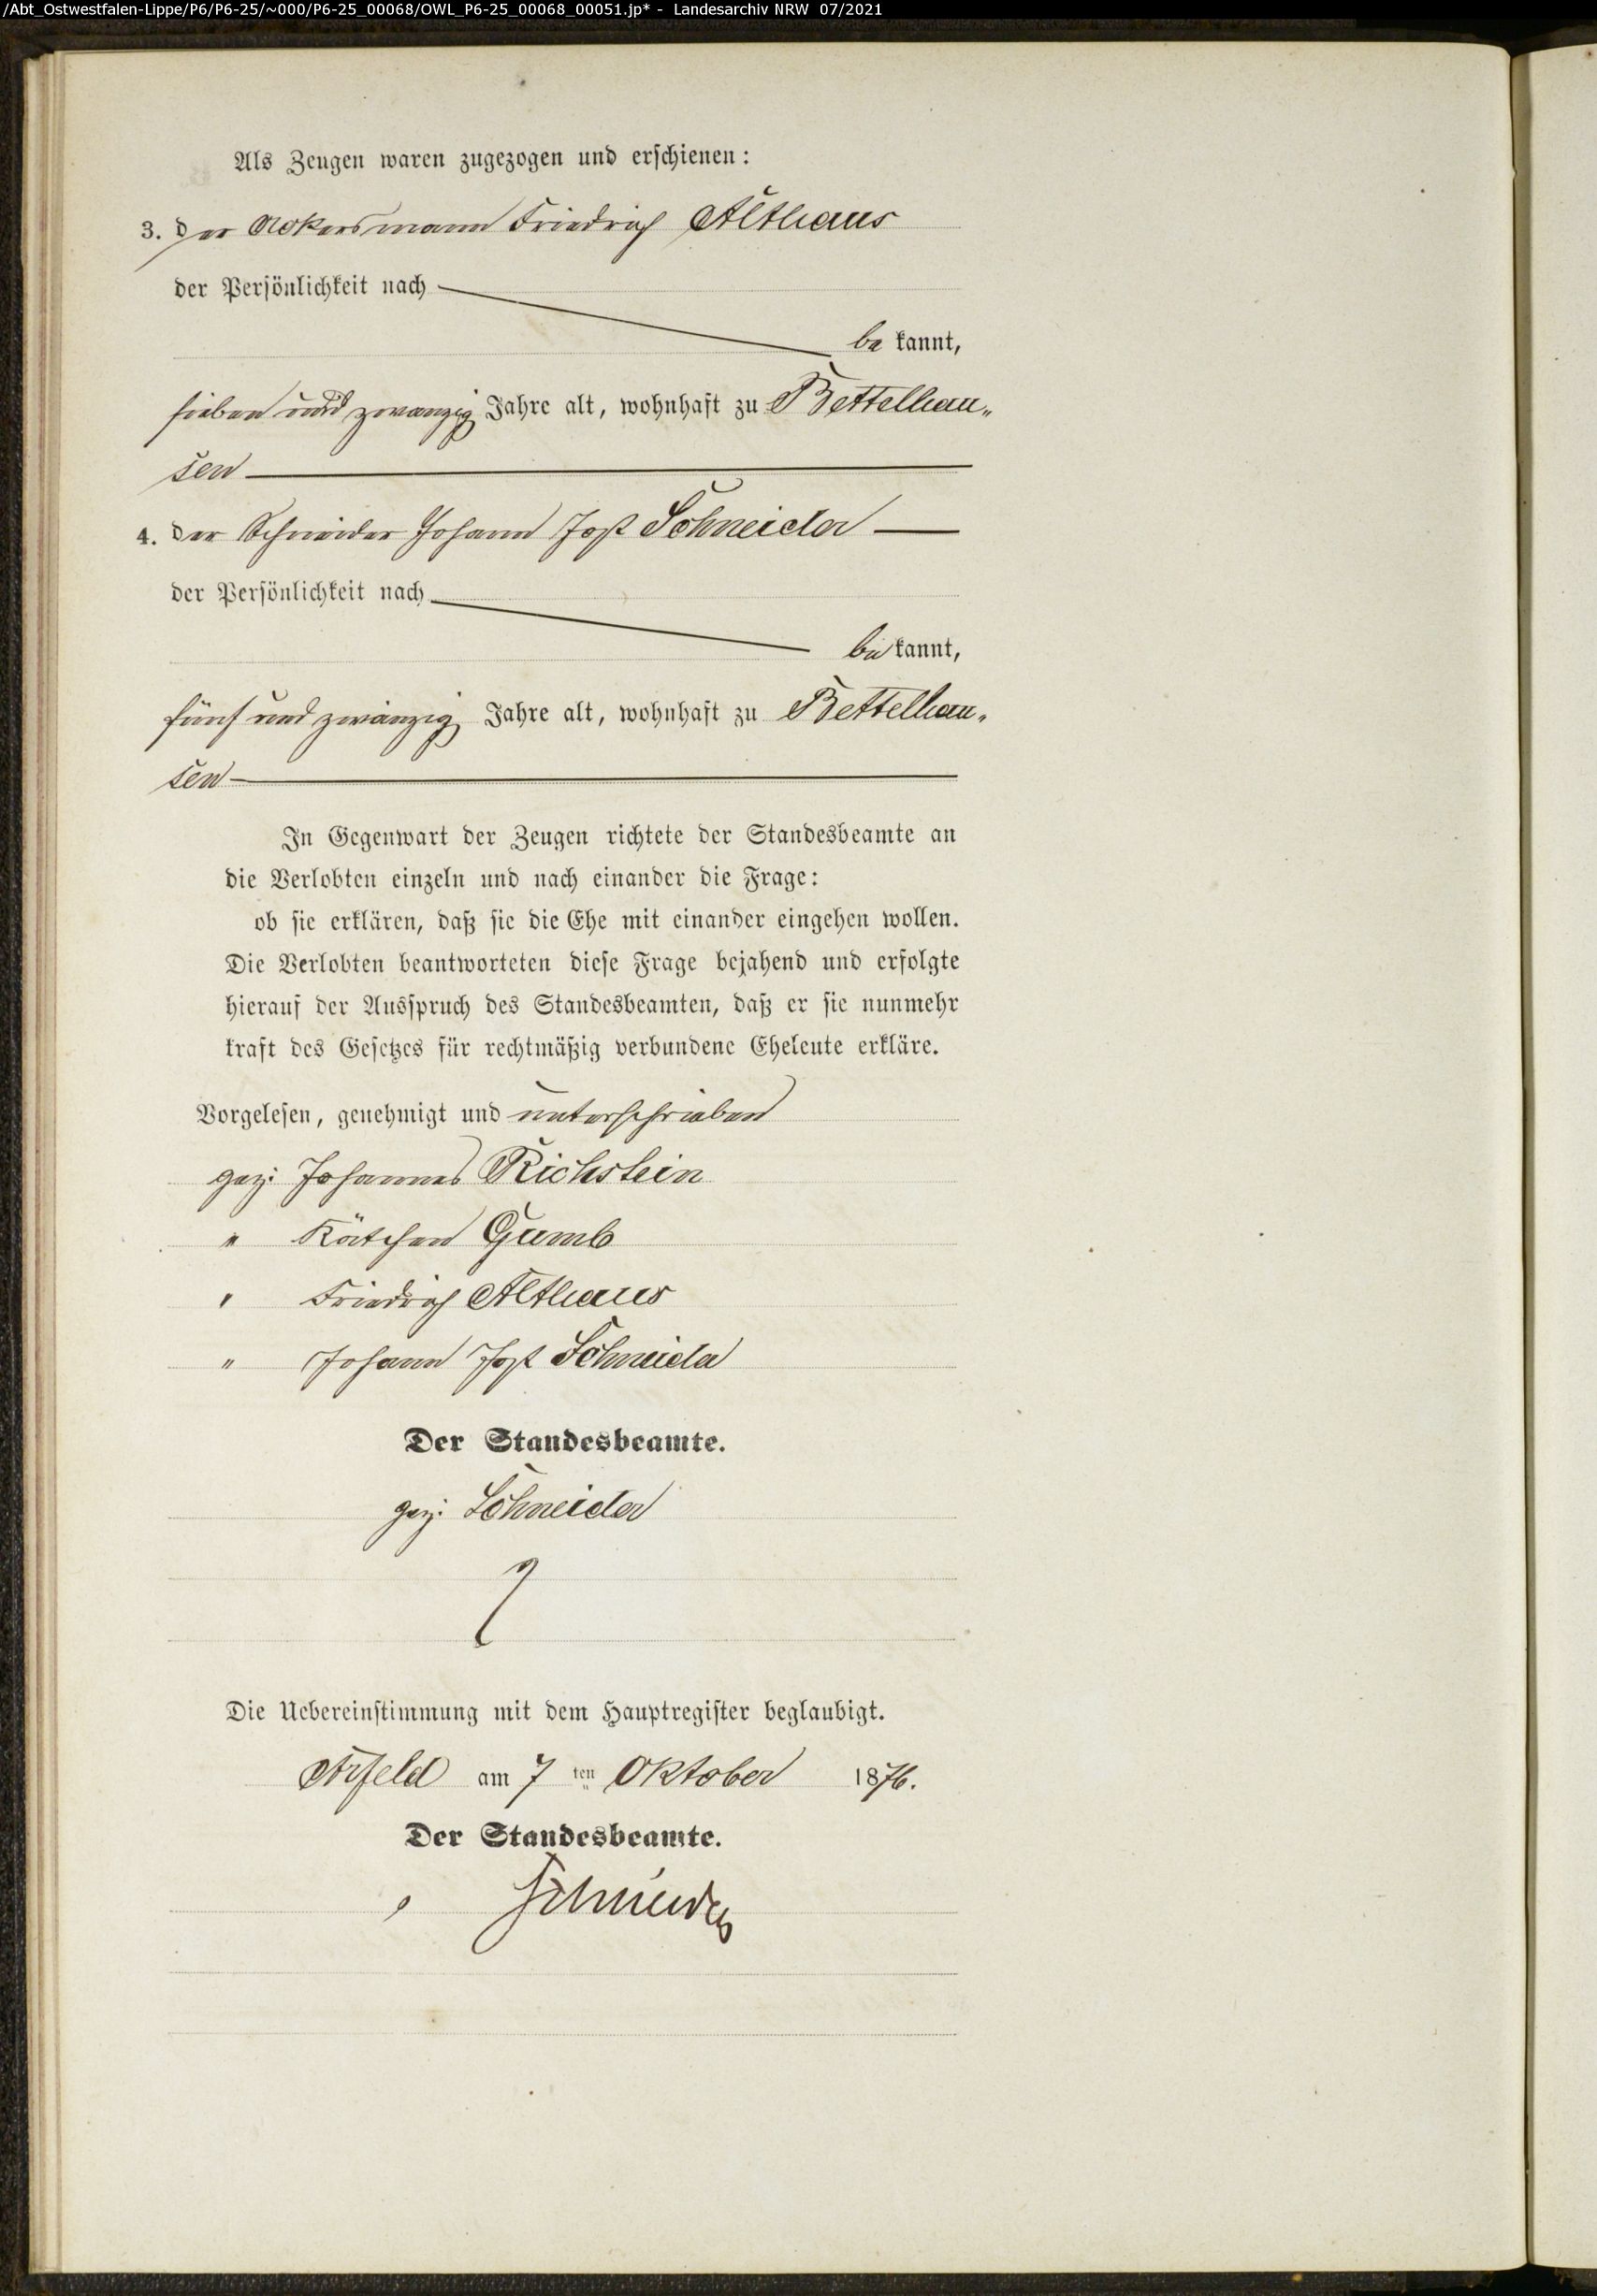 /Abt_Ostwestfalen-Lippe/P6/P6-25/~000/P6-25_00068/OWL_P6-25_00068_00051.jp* - Landesarchiv NRW 07/2021
Als Zeugen waren zugezogen und erschienen:
3. der Ackersmann Friedrich Althaus
der Persönlichkeit nach
be kannt,
sieben und zwanzig Jahre alt, wohnhaft zu Bettelhau„
sen
4. der Schneider Johann Jost Schneider
der Persönlichkeit nach
be kannt,
fünf und zwanzig Jahre alt, wohnhaft zu Bettelhau„
sen
In Gegenwart der Zeugen richtete der Standesbeamte an
die Verlobten einzeln und nach einander die Frage:
ob sie erklären, daß sie die Ehe mit einander eingehen wollen.
Die Verlobten beantworteten diese Frage bejahend und erfolgte
hierauf der Ausspruch des Standesbeamten, daß er sie nunmehr
kraft des Gesetzes für rechtmäßig verbundene Eheleute erkläre.
Vorgelesen, genehmigt und unterschrieben
gez: Johannes Richstein
" Kätchen Gumb
" Friedrich Althaus
" Johann Jost Schneider
Der Standesbeamte.
gez: Schneider
Die Uebereinstimmung mit dem Hauptregister beglaubigt.
Arfeld am 7 ten Oktober 1876.
Der Standesbeamte.
Schneider